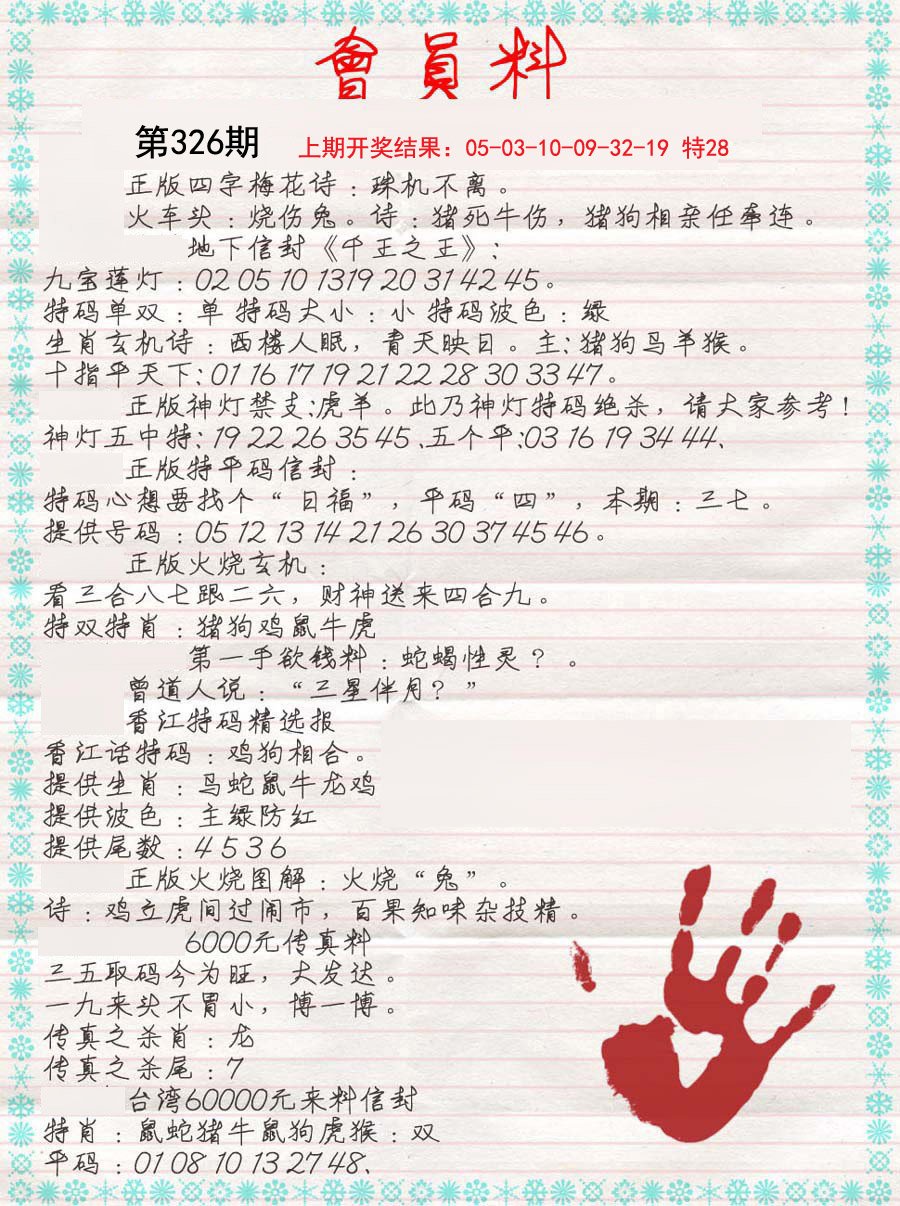 會員料
第326期 上期开奖结果：05-03-10-09-32-19 特28
正版四字梅花诗：珠机不离。
火车头：烧伤兔。诗：猪死牛伤，猪狗相亲任牵连。
地下信封《千王之王》：
九宝莲灯：02 05 10 1319 20 31 42 45。
特码单双：单 特码大小：小 特码波色：绿
生肖玄机诗：西楼人眠，青天映日。主：猪狗鸟羊猴。
十指平天下：01 16 17 19 21 22 28 30 33 47。
正版神灯禁支：虎羊。此乃神灯特码绝杀，请大家参考！
神灯五中特：19 22 26 35 45、五个平：03 16 19 34 44、
正版特平码信封：
特码心想要找个“日福”，平码“四”，本期：三七。
提供号码：05 12 13 14 21 26 30 37 45 46。
正版火烧玄机：
看三合八七跟二六，财神送来四合九。
特双特肖：猪狗鸡鼠牛虎
第一手欲钱料：蛇蝎性灵？。
曾道人说：“三星伴月？”
香江特码精选报
香江话特码：鸡狗相合。
提供生肖：鸟蛇鼠牛龙鸡
提供波色：主绿防红
提供尾数：4 5 3 6
正版火烧图解：火烧“兔”。
诗：鸡立虎间过闹市，百果知味杂技精。
6000元传真料
三五取码今为旺，大发达。
一九来头不胃小，博一博。
传真之杀肖：龙
传真之杀尾：7
台湾60000元来料信封
特肖：鼠蛇猪牛鼠狗虎猴：双
平码：01 08 10 13 27 48、